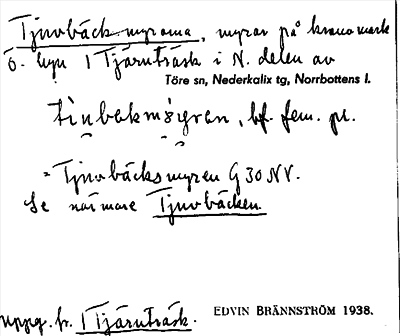 Tjuvbäckmyrarna, myrar på kronomark
ö. byn 1 Tjärnträsk i N. delen av
Töre sn, Nederkalix tg, Norrbottens l.
bf. fem. pl.
= Tjuvbäcksmyren G 30 NV.
Se närmare Tjuvbäcken
uppg. fr. 1 Tjärnträsk.
EDVIN BRÄNNSTRÖM 1938.